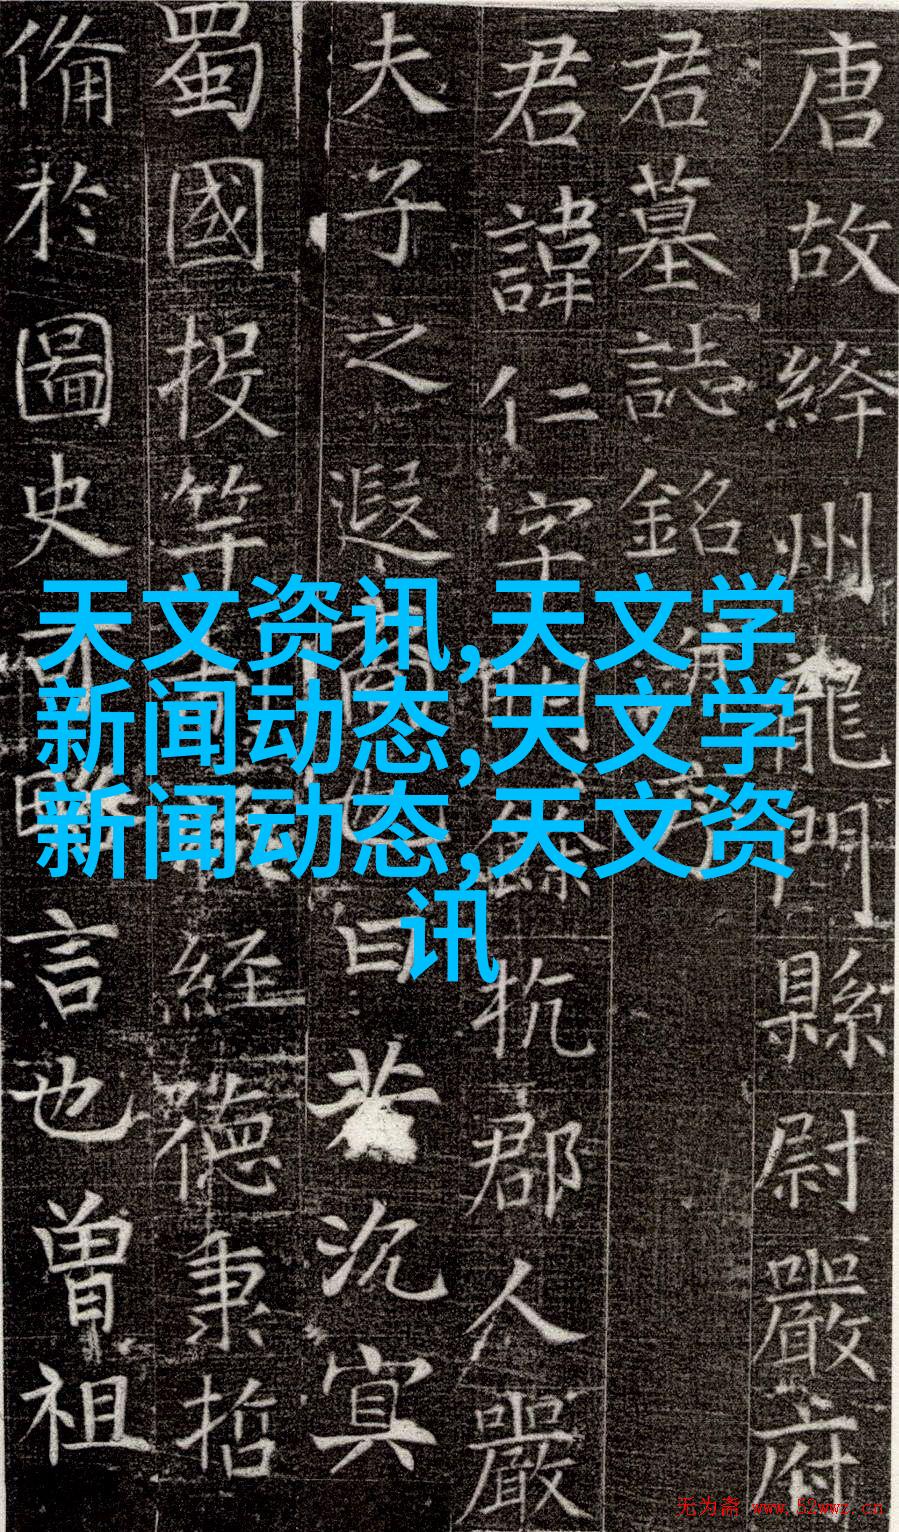 唐故絳州龍門縣尉嚴府
君墓誌銘
君諱仁字明餘杭郡人嚴
夫子之遐曰若沉冥
蜀國投竿経德秉哲
俻於圖史言也曾祖
天文资讯,天文学
新闻动态,天文学
新闻动态,天文资
讯
无为斋 www.52wwz.cn